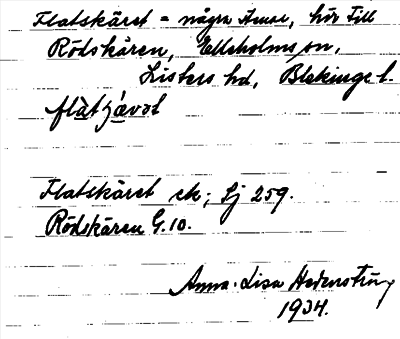 Flatskäret = några stenar, hör till
Rödskären, Elleholms sn,
Listers hd, Blekinge l.
Flatskäret ek; Sj 259.
Rödskären G. 10.
Anna-Lisa Hedenström
1934.